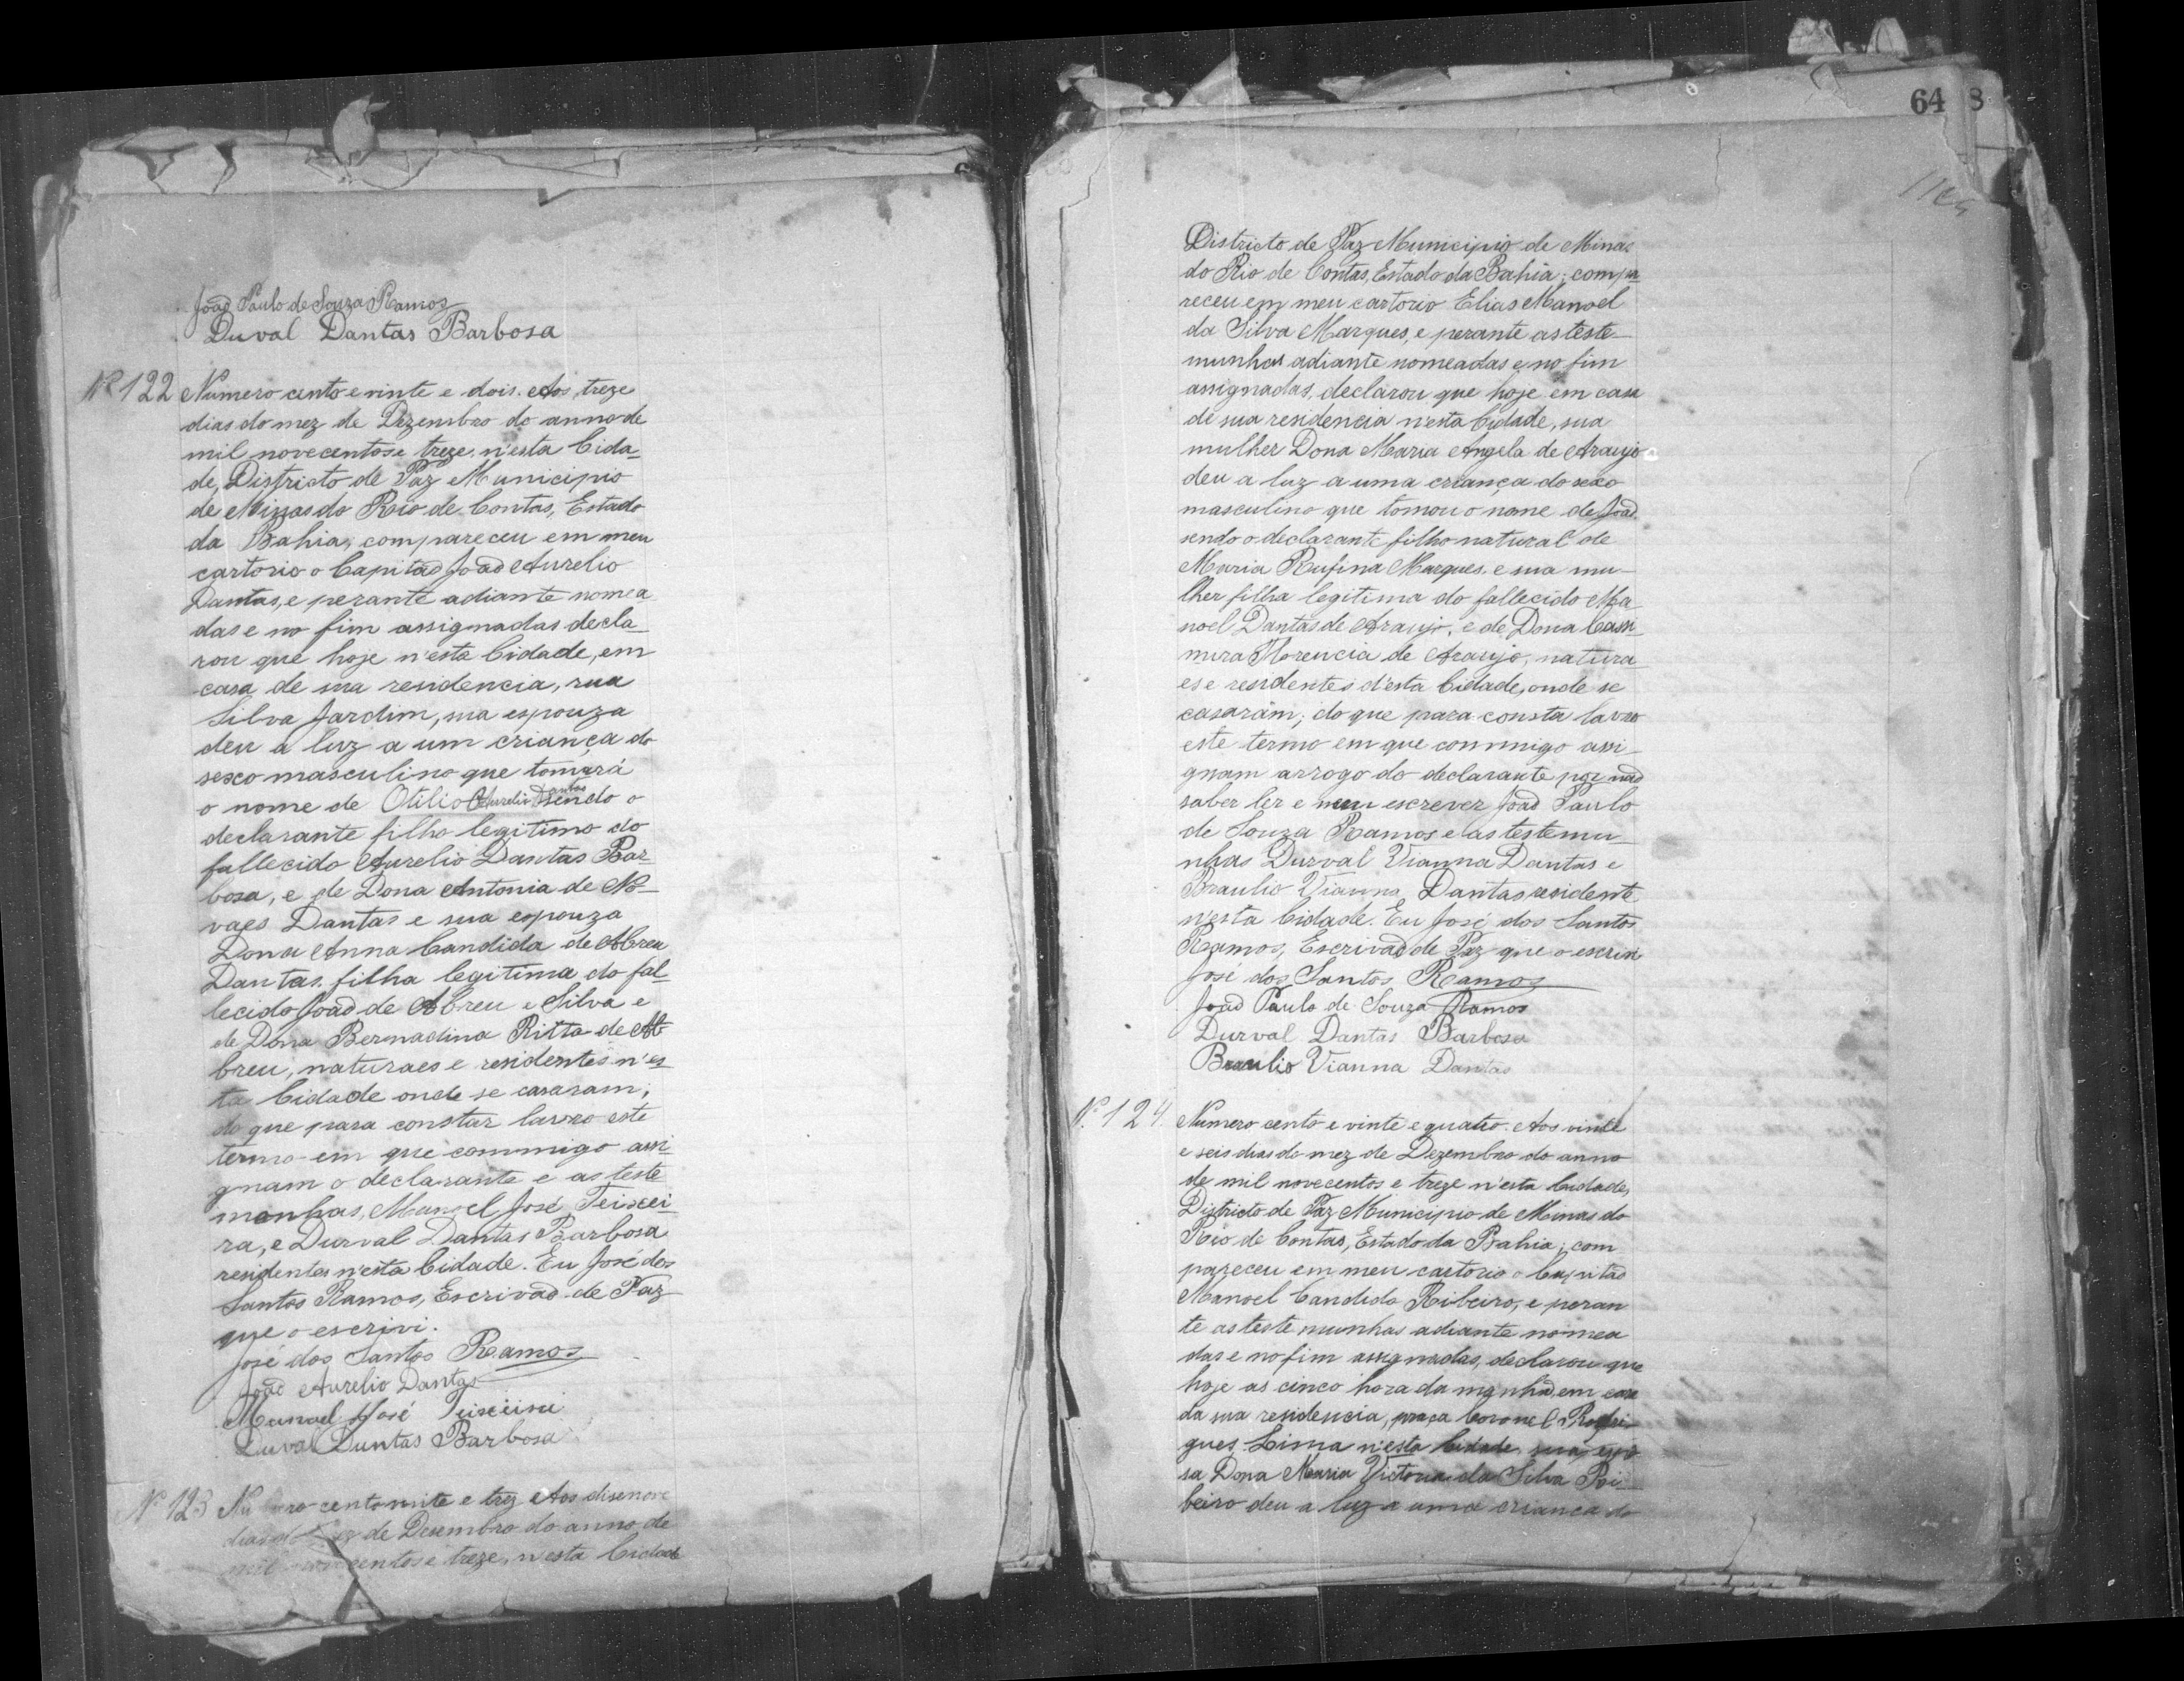 João Paulo de Souza Ramos
Duval Dantas Barbosa
Nº 122 Numero cento e vinte e dois. Aos treze
dias do mez de Dezembro do anno de
mil novecentos e treze, n'esta Cida-
de, Districto de Paz Municipio
de Minas do Rio de Contas, Estado
da Bahia, compareceu em meu
cartorio o Capitão João Aurelio
Dantas, e perante adiante nomea
das e no fim assignadas decla-
rou que hoje n'esta Cidade, em
casa de sua residencia, rua
Silva Jardim, sua espouza
deu a luz a um criança do
sexo masculino que tomará
o nome de Otilio Aurelio Dantas sendo o
declarante filho legitimo do
fallecido Aurelio Dantas Bar-
bosa, e de Dona Antonia de No-
vaes Dantas e sua espouza
Dona Anna Candida de Abreu
Dantas, filha legitima do fal-
lecido João de Abreu e Silva e
de Dona Bernadina Ritta de Ab-
breu, naturaes e residentes n'es-
ta Cidade onde se casaram;
do que para constar lavro este
termo em que commigo assi-
gnam o declarante e as teste-
munhas, Manoel José Teixei-
ra, e Durval Dantas Barbosa
residentes n'esta Cidade. Eu José dos
Santos Ramos, Escrivão de Paz
que o escrivi.
José dos Santos Ramos
João Aurelio Dantas
Manoel José Teixeira
Duval Dantas Barbosa
Nº 123 Numero cento vinte e trez Aos disenove
dias do mez de Desembro do anno de
mil novecentos e treze, n'esta Cidade
64 8
Districto de Paz Municipio de Minas
do Rio de Contas, Estado da Bahia; compa
receu em meu cartorio Elias Manoel
da Silva Marques, e perante as teste-
munhas adiante nomeadas e no fim
assignadas, declarou que hoje em casa
de sua residencia n'esta Cidade, sua
mulher Dona Maria Angela de Araujo
deu a luz a uma criança do sexo
masculino que tomou o nome de João
sendo o declarante filho natural de
Maria Rufina Marques, e sua mu-
lher filha legitima do fallecido Ma-
noel Dantas de Araujo, e de Dona Cassi-
mira Florencia de Araujo, natura-
es e residentes d'esta Cidade, onde se
casarám; do que para consta lavro
este termo em que commigo assi-
gnam arrogo do declarante por não
saber ler e nem escrever João Paulo
de Souza Ramos e as testemu-
nhas Durval Vianna Dantas e
Braulio Vianna Dantas residente
n'esta Cidade. Eu José dos Santos
Ramos, Escrivão de Paz que o escrivi
José dos Santos Ramos
João Paulo de Souza Ramos
Durval Dantas Barbosa
Braulio Vianna Dantas
Nº 124 Numero cento e vinte e quatro. Aos vinte
e seis dias do mez de Dezembro do anno
de mil novecentos e treze n'esta Cidade,
Districto de Paz Municipio de Minas do
Rio de Contas, Estado da Bahia; com
pareceu em meu cartorio o Capitão
Manoel Candido Ribeiro, e peran
te as teste munhas adiante nomea
das e no fim assignadas, declarou que
hoje as cinco hora da manhã em casa
da sua residencia, praça Coronel Rodri-
gues Lima n'esta Cidade, sua espo
sa Dona Maria Victoria da Silva Ri-
beiro deu a luz a uma criança do